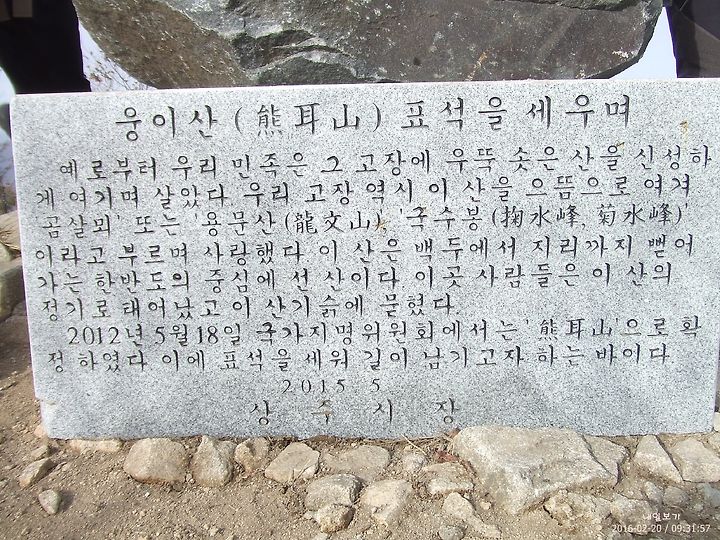 웅이산(熊耳山) 표석을 세우며
예로부터 우리 민족은 그 고장에 우뚝 솟은 산을 신성하
게 여기며 살았다. 우리 고장 역시 이 산을 으뜸으로 여겨
'곰살뫼' 또는 '용문산(龍文山)', '국수봉(掬水峰, 菊水峰)'
이라고 부르며 사랑했다. 이 산은 백두에서 지리까지 뻗어
가는 한반도의 중심에 선 산이다. 이곳 사람들은 이 산의
정기로 태어났고 이 산기슭에 묻혔다.
2012년 5월 18일 국가지명위원회에서는 '熊耳山'으로 확
정 하였다. 이에 표석을 세워 길이 남기고자 하는 바이다.
2015 5
상 주 시 장
내일보기
2016-02-20 / 09:31:57